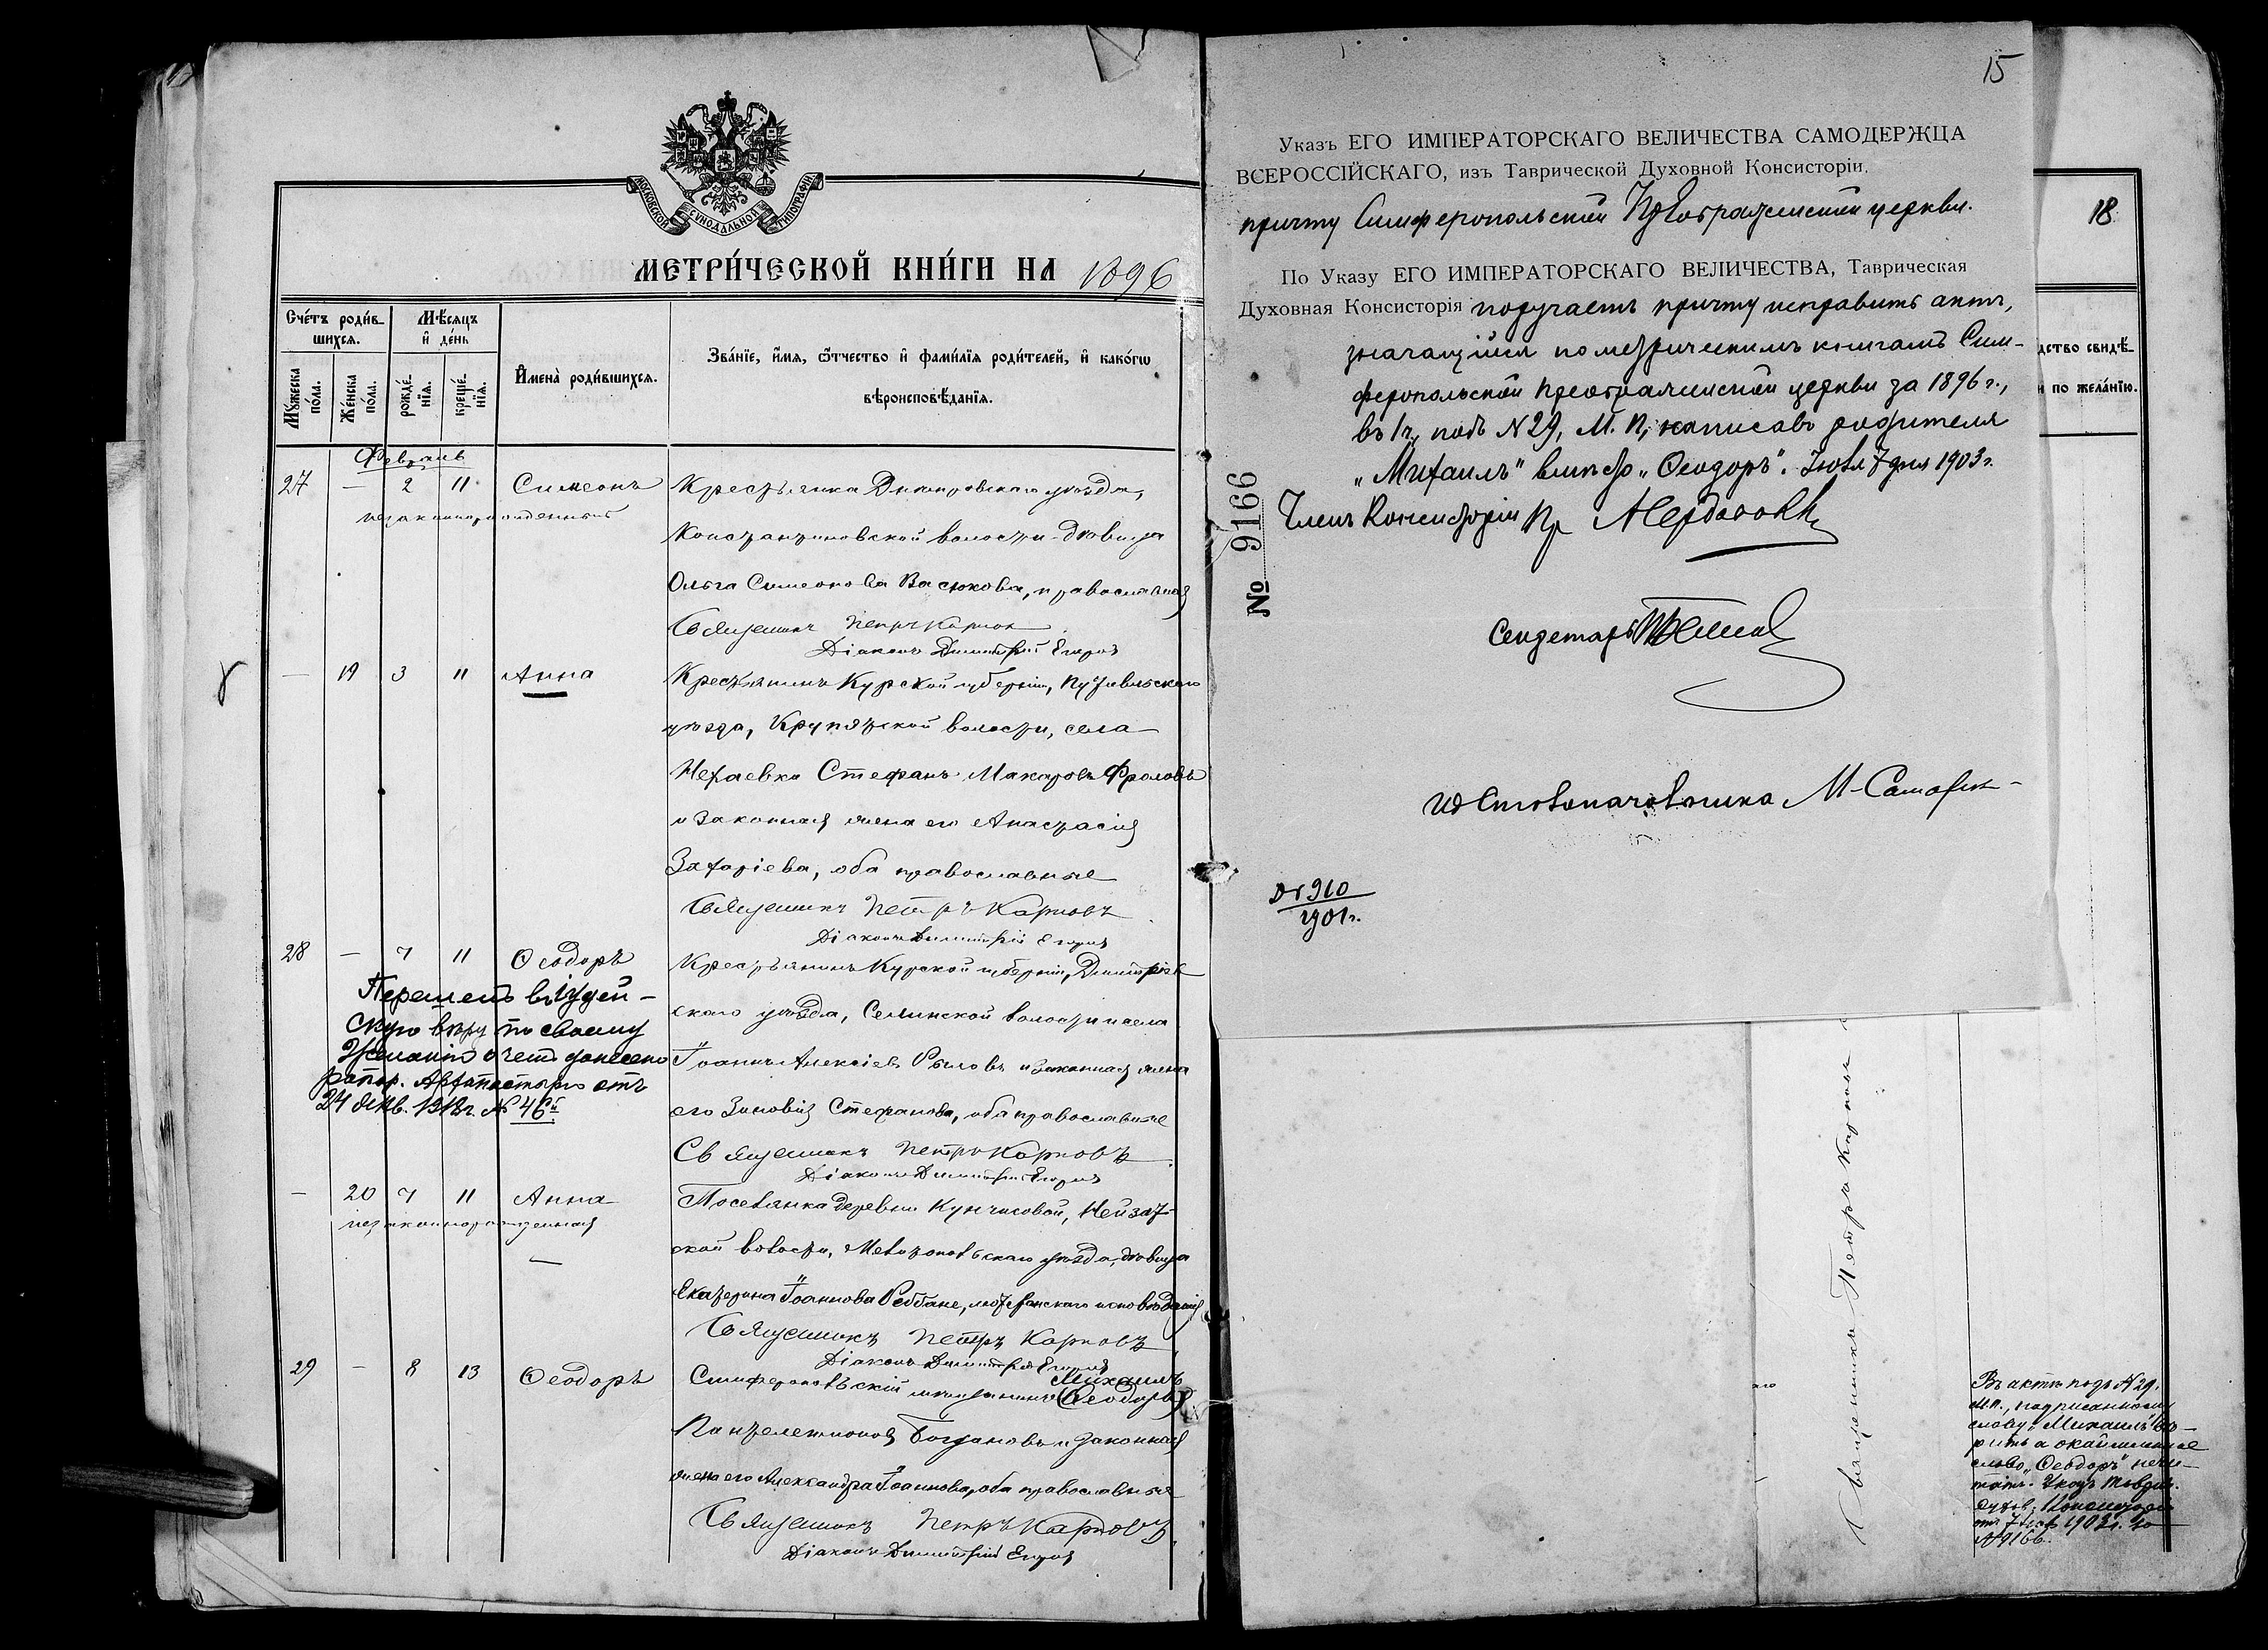 МОСКОВСКОЙ СѴНОДАЛЬНОЙ ТИПОГРАФІИ
МЕТРИ́ЧЕСКОЙ КНИ́ГИ НА 1896
Сче́тъ роди́в-
шихсѧ.
Мѣ́сѧцъ
и҆ де́нь
Мꙋ́жеска
по́ла.
Же́нска
по́ла.
рожде́-
нїѧ.
креще́-
нїѧ.
И҆мена̀ роди́вшихсѧ.
Зва́нїе, и҆́мѧ, ѻ҆́тчество и҆ фами́лїѧ роди́телей, и҆ како́гѡ
вѣроисповѣ́данїѧ.
Февраль
27 — 2 11 Симеонъ
незаконнорожденный
Крестьянка Днепровскаго уѣзда,
Константиновской волости дѣвица
Ольга Симеонова Васюкова, православная
Священникъ Петръ Карпов
Діаконъ Димитрій
— 19 3 11 Анна
Крестьянинъ Курской губерніи, Путивльскаго
уѣзда, Крупецкой волости, села
Нехаевки Стефанъ Макаровъ Фроловъ
и законная жена его Анастасія
Захаріева, оба православные
Священникъ Петръ Карповъ
Діаконъ Димитрій
28 — 7 11 Ѳеодоръ
Перешелъ въ іудей-
скую вѣру по своему
желанію о чемъ донесено
рапор. Архипастырю отъ
24 декб. 1912г. № 46й
Крестьянинъ Курской губерніи, Дмитріев-
скаго уѣзда, Селинской волости и села
Іоаннъ Алексіевъ Рыловъ и законная жена
его Зиновія Стефанова, оба православные
Священникъ Петръ Карповъ
Діаконъ Димитрій
— 20 7 11 Анна
незаконнорожденная
Поселянка деревни Кунчиковой, Нейзац-
ской волости, Мелитопольскаго уѣзда, дѣвица
Екатерина Іоаннова, лютеранскаго исповѣданія
Священникъ Петръ Карповъ
Діаконъ Димитрій
29 — 8 13 Ѳеодоръ
Михаилъ
Симферопольскій мѣщанинъ (Ѳеодоръ)
Пантелеимоновъ Богдановъ и законная
жена его Александра Іоаннова, оба православные
Священникъ Петръ Карповъ
Діаконъ Димитрій
15
Указъ ЕГО ИМПЕРАТОРСКАГО ВЕЛИЧЕСТВА САМОДЕРЖЦА
ВСЕРОССІЙСКАГО, изъ Таврической Духовной Консисторіи.
причту Симферопольской Преображенской церкви.
По Указу ЕГО ИМПЕРАТОРСКАГО ВЕЛИЧЕСТВА, Таврическая
Духовная Консисторія поручаетъ причту исправить актъ,
значащійся по метрическимъ книгамъ Сим-
феропольской Преображенской церкви за 1896 г.,
въ 1 ч. подъ N 29, М. П., написавъ родителя
„Михаилъ" вмѣсто „Ѳеодоръ". Іюля 7 дня 1903 г.
Членъ Консисторіи Пр
Секретарь
№ 9166
Столоначальника М.
910
1901г.
18
дство свидѣ-
и по жела́нїю.
Священникъ Петръ Карповъ
Въ актѣ подъ № 29.
м.п., надписанному
слову „Михаилъ" вѣ-
рить а окаймленное
слово „Ѳеодоръ" нечи-
тать. Указъ
Духов. Консисторіи
отъ 7 1903г. за
№ 9166.